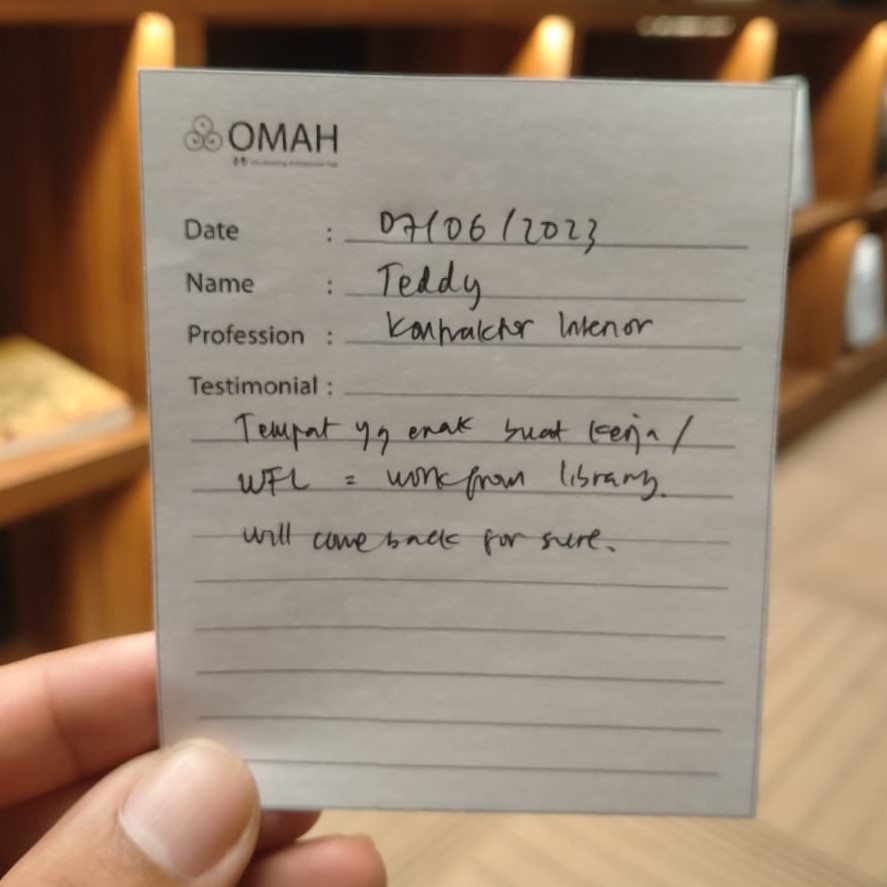 OMAH
Date : 07/06/2023
Name : Teddy
Profession : Kontraktor Interior
Testimonial :
Tempat yg enak buat kerja /
WFL = work from library.
will come back for sure.